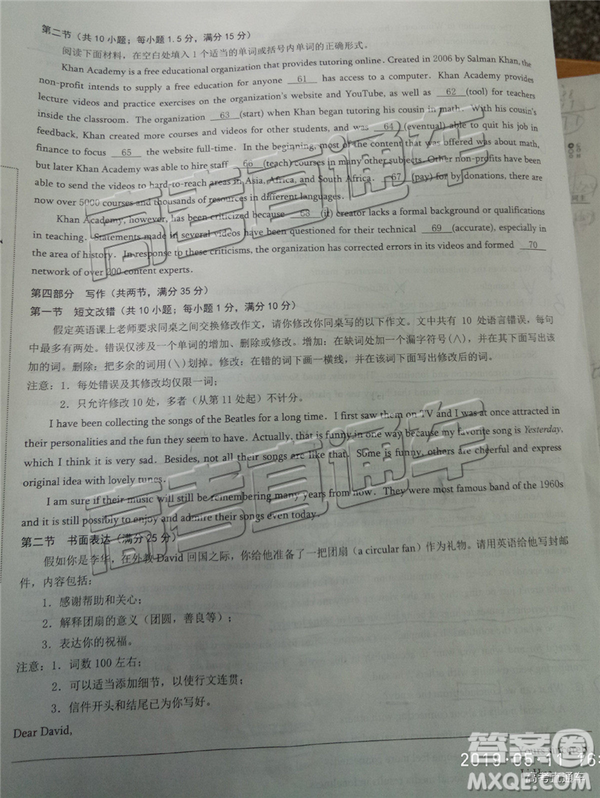 第二节（共10小题；每小题1.5分，满分15分）
阅读下面材料，在空白处填入1个适当的单词或括号内单词的正确形式。
Khan Academy is a free educational organization that provides tutoring online. Created in 2006 by Salman Khan, the
non-profit intends to supply a free education for anyone 61 has access to a computer. Khan Academy provides
lecture videos and practice exercises on the organization's website and YouTube, as well as 62 (tool) for teachers
inside the classroom. The organization 63 (start) when Khan began tutoring his cousin in math. With his cousin's
feedback, Khan created more courses and videos for other students, and was 64 (eventual) able to quit his job in
finance to focus 65 the website full-time. In the beginning, most of the content that was offered was about math,
but later Khan Academy was able to hire staff 66 (teach) courses in many other subjects. Other non-profits have been
able to send the videos to hard-to-reach areas in Asia, Africa, and South Africa. 67 (pay) for by donations, there are
now over 5000 courses and thousands of resources in different languages.
Khan Academy, however, has been criticized because 68 (it) creator lacks a formal background or qualifications
in teaching. Statements made in several videos have been questioned for their technical 69 (accurate), especially in
the area of history. In response to these criticisms, the organization has corrected errors in its videos and formed 70
network of over 200 content experts.
第四部分 写作（共两节，满分35分）
第一节 短文改错（共10小题；每小题1分，满分10分）
假定英语课上老师要求同桌之间交换修改作文，请你修改你同桌写的以下作文。文中共有10处语言错误，每句
中最多有两处。错误仅涉及一个单词的增加、删除或修改。增加：在缺词处加一个漏字符号(∧)，并在其下面写出该
加的词。删除：把多余的词用(\)划掉。修改：在错的词下画一横线，并在该词下面写出修改后的词。
注意：1．每处错误及其修改均仅限一词；
2．只允许修改10处，多者（从第11处起）不计分。
I have been collecting the songs of the Beatles for a long time. I first saw them on TV and I was at once attracted in
their personalities and the fun they seem to have. Actually, that is funny in one way because my favorite song is Yesterday,
which I think it is very sad. Besides, not all their songs are like that. SOme is funny, others are cheerful and express
original idea with lovely tunes.
I am sure if their music will still be remembering many years from now. They were most famous band of the 1960s
and it is still possibly to enjoy and admire their songs even today.
第二节 书面表达（满分25分）
假如你是李华，在外教David回国之际，你给他准备了一把团扇(a circular fan)作为礼物。请用英语给他写封邮
件，内容包括：
1．感谢帮助和关心；
2．解释团扇的意义（团圆，善良等）；
3．表达你的祝福。
注意：1．词数100左右；
2．可以适当添加细节，以使行文连贯；
3．信件开头和结尾已为你写好。
Dear David,
高考直通车
高考直通车
高考直通车
答案圈
MXQE.COM